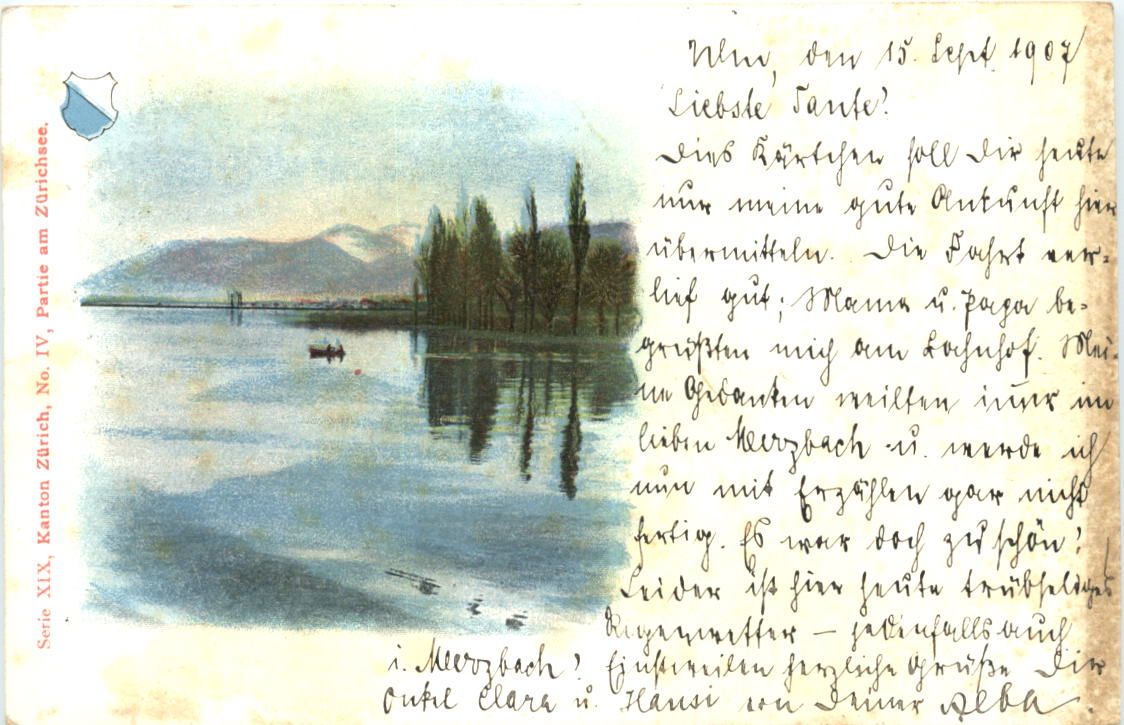 Serie XIX, Kanton Zürich, No. IV, Partie am Zürichsee.
Ulm, den 15. Sept. 1907
Liebste Tante!
Dies Kärtchen soll Dir heute
nur meine gute Ankunft hier
übermitteln. Die Fahrt ver-
lief gut; Mama u. Papa be-
grüßten mich am Bahnhof. Mei-
ne Gedanken weilten immer im
lieben Merzbach u. werde ich
nun mit Erzählen gar nicht
fertig. Es war doch zu schön!
Leider ist hier heute trübseliges
Regenwetter — jedenfalls auch
i. Merzbach! Einstweilen herzliche Grüße Dir
Onkel Clara u. Hansi von Deiner